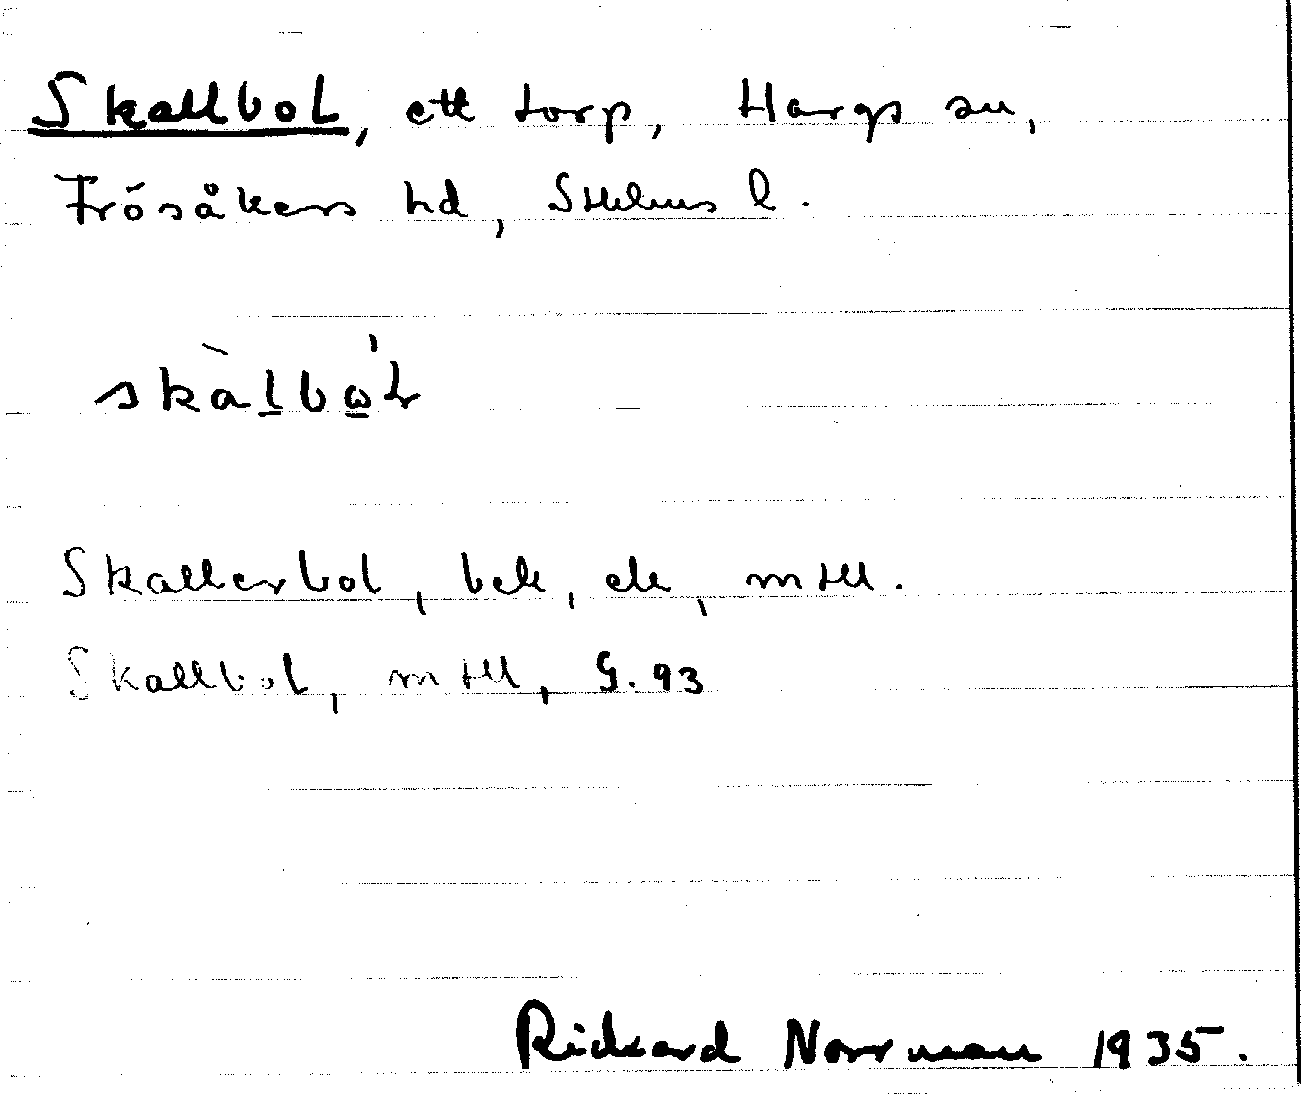 Skallbol, ett torp, Hargs sn,
Frösåkers hd, Sthlms l.
skàlbω'l
Skallerbol, bek, ek, mtll.
Skallbol, mtll, G. 93
Rickard Norrman 1935.